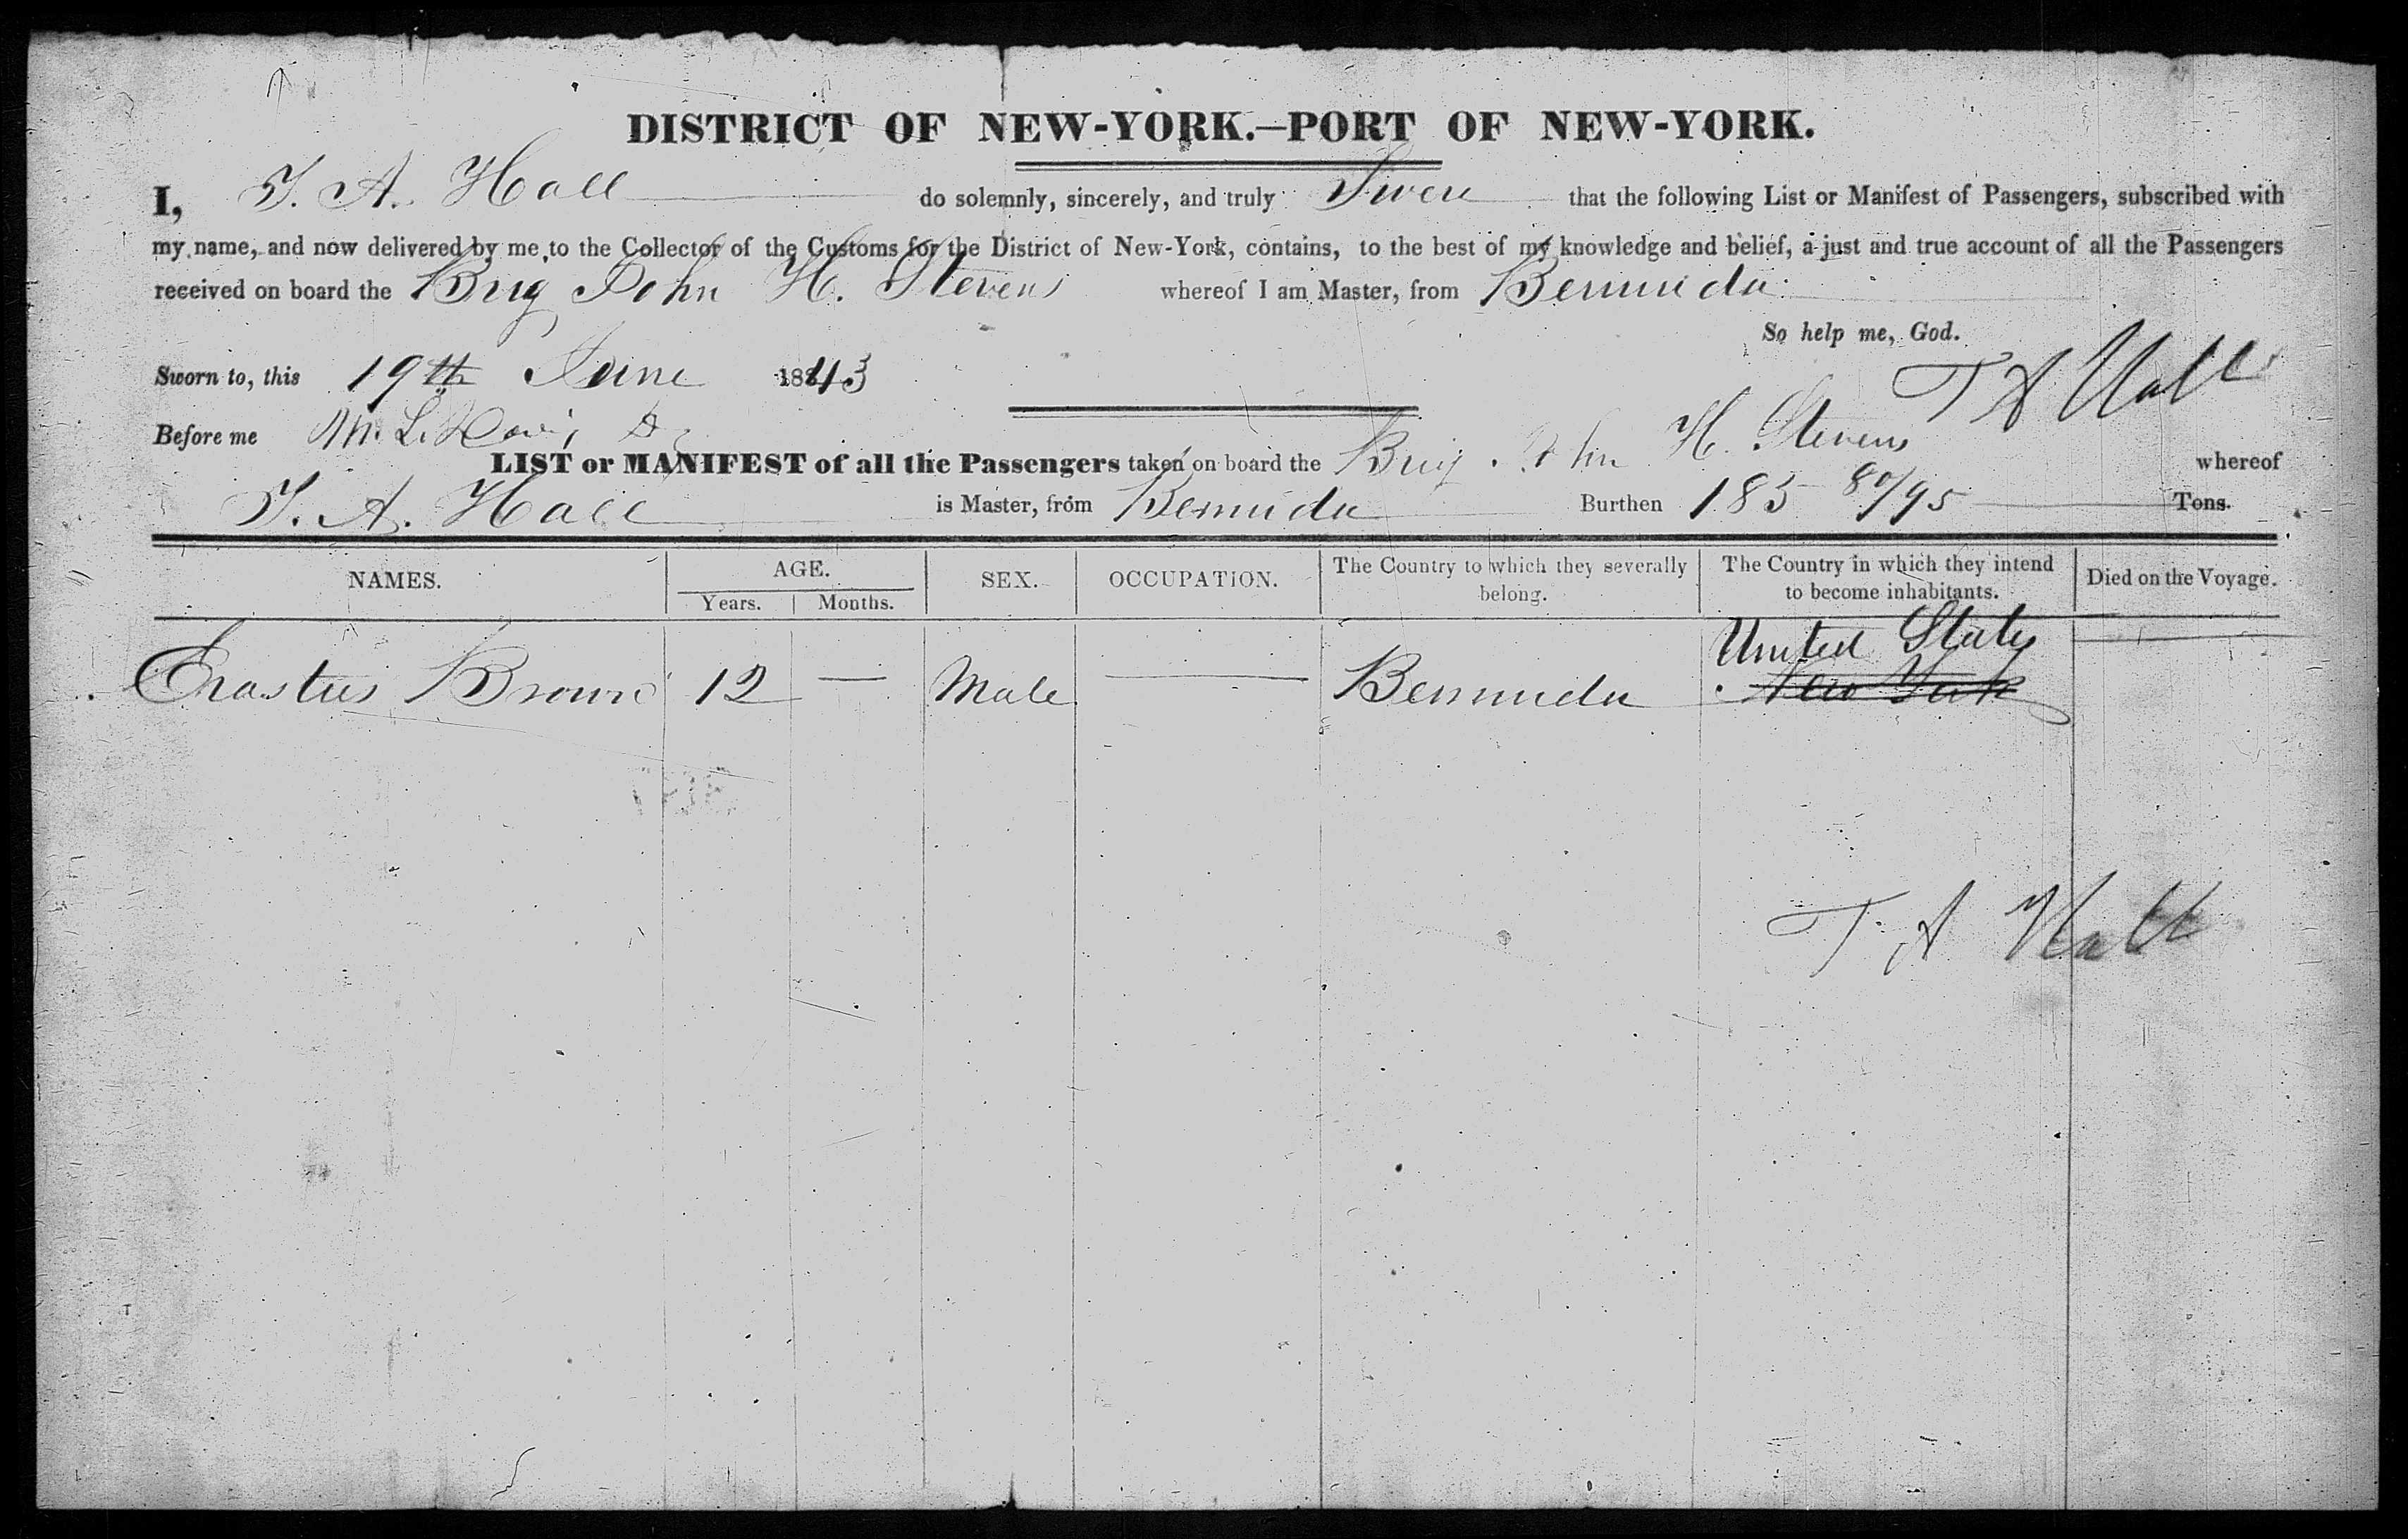 DISTRICT OF NEW-YORK.—PORT OF NEW-YORK.
I, T. A. Hall do solemnly, sincerely, and truly Swere that the following List or Manifest of Passengers, subscribed with
my name, and now delivered by me to the Collector of the Customs for the District of New-York, contains, to the best of my knowledge and belief, a just and true account of all the Passengers
received on board the Brig John H. Stevens whereof I am Master, from Bermuda
So help me, God.
Sworn to, this 19th June 1843 T A Hall
Before me
LIST or MANIFEST of all the Passengers taken on board the Brig John H. Stevens whereof
T. A. Hall is Master, from Bermuda Burthen 185 80/95 Tons.
NAMES. AGE. SEX. OCCUPATION. The Country to which they severally belong. The Country in which they intend to become inhabitants. Died on the Voyage.
Years. Months.
United States
Erastus Brown 12 — Male — Bermuda New York
T A Hall